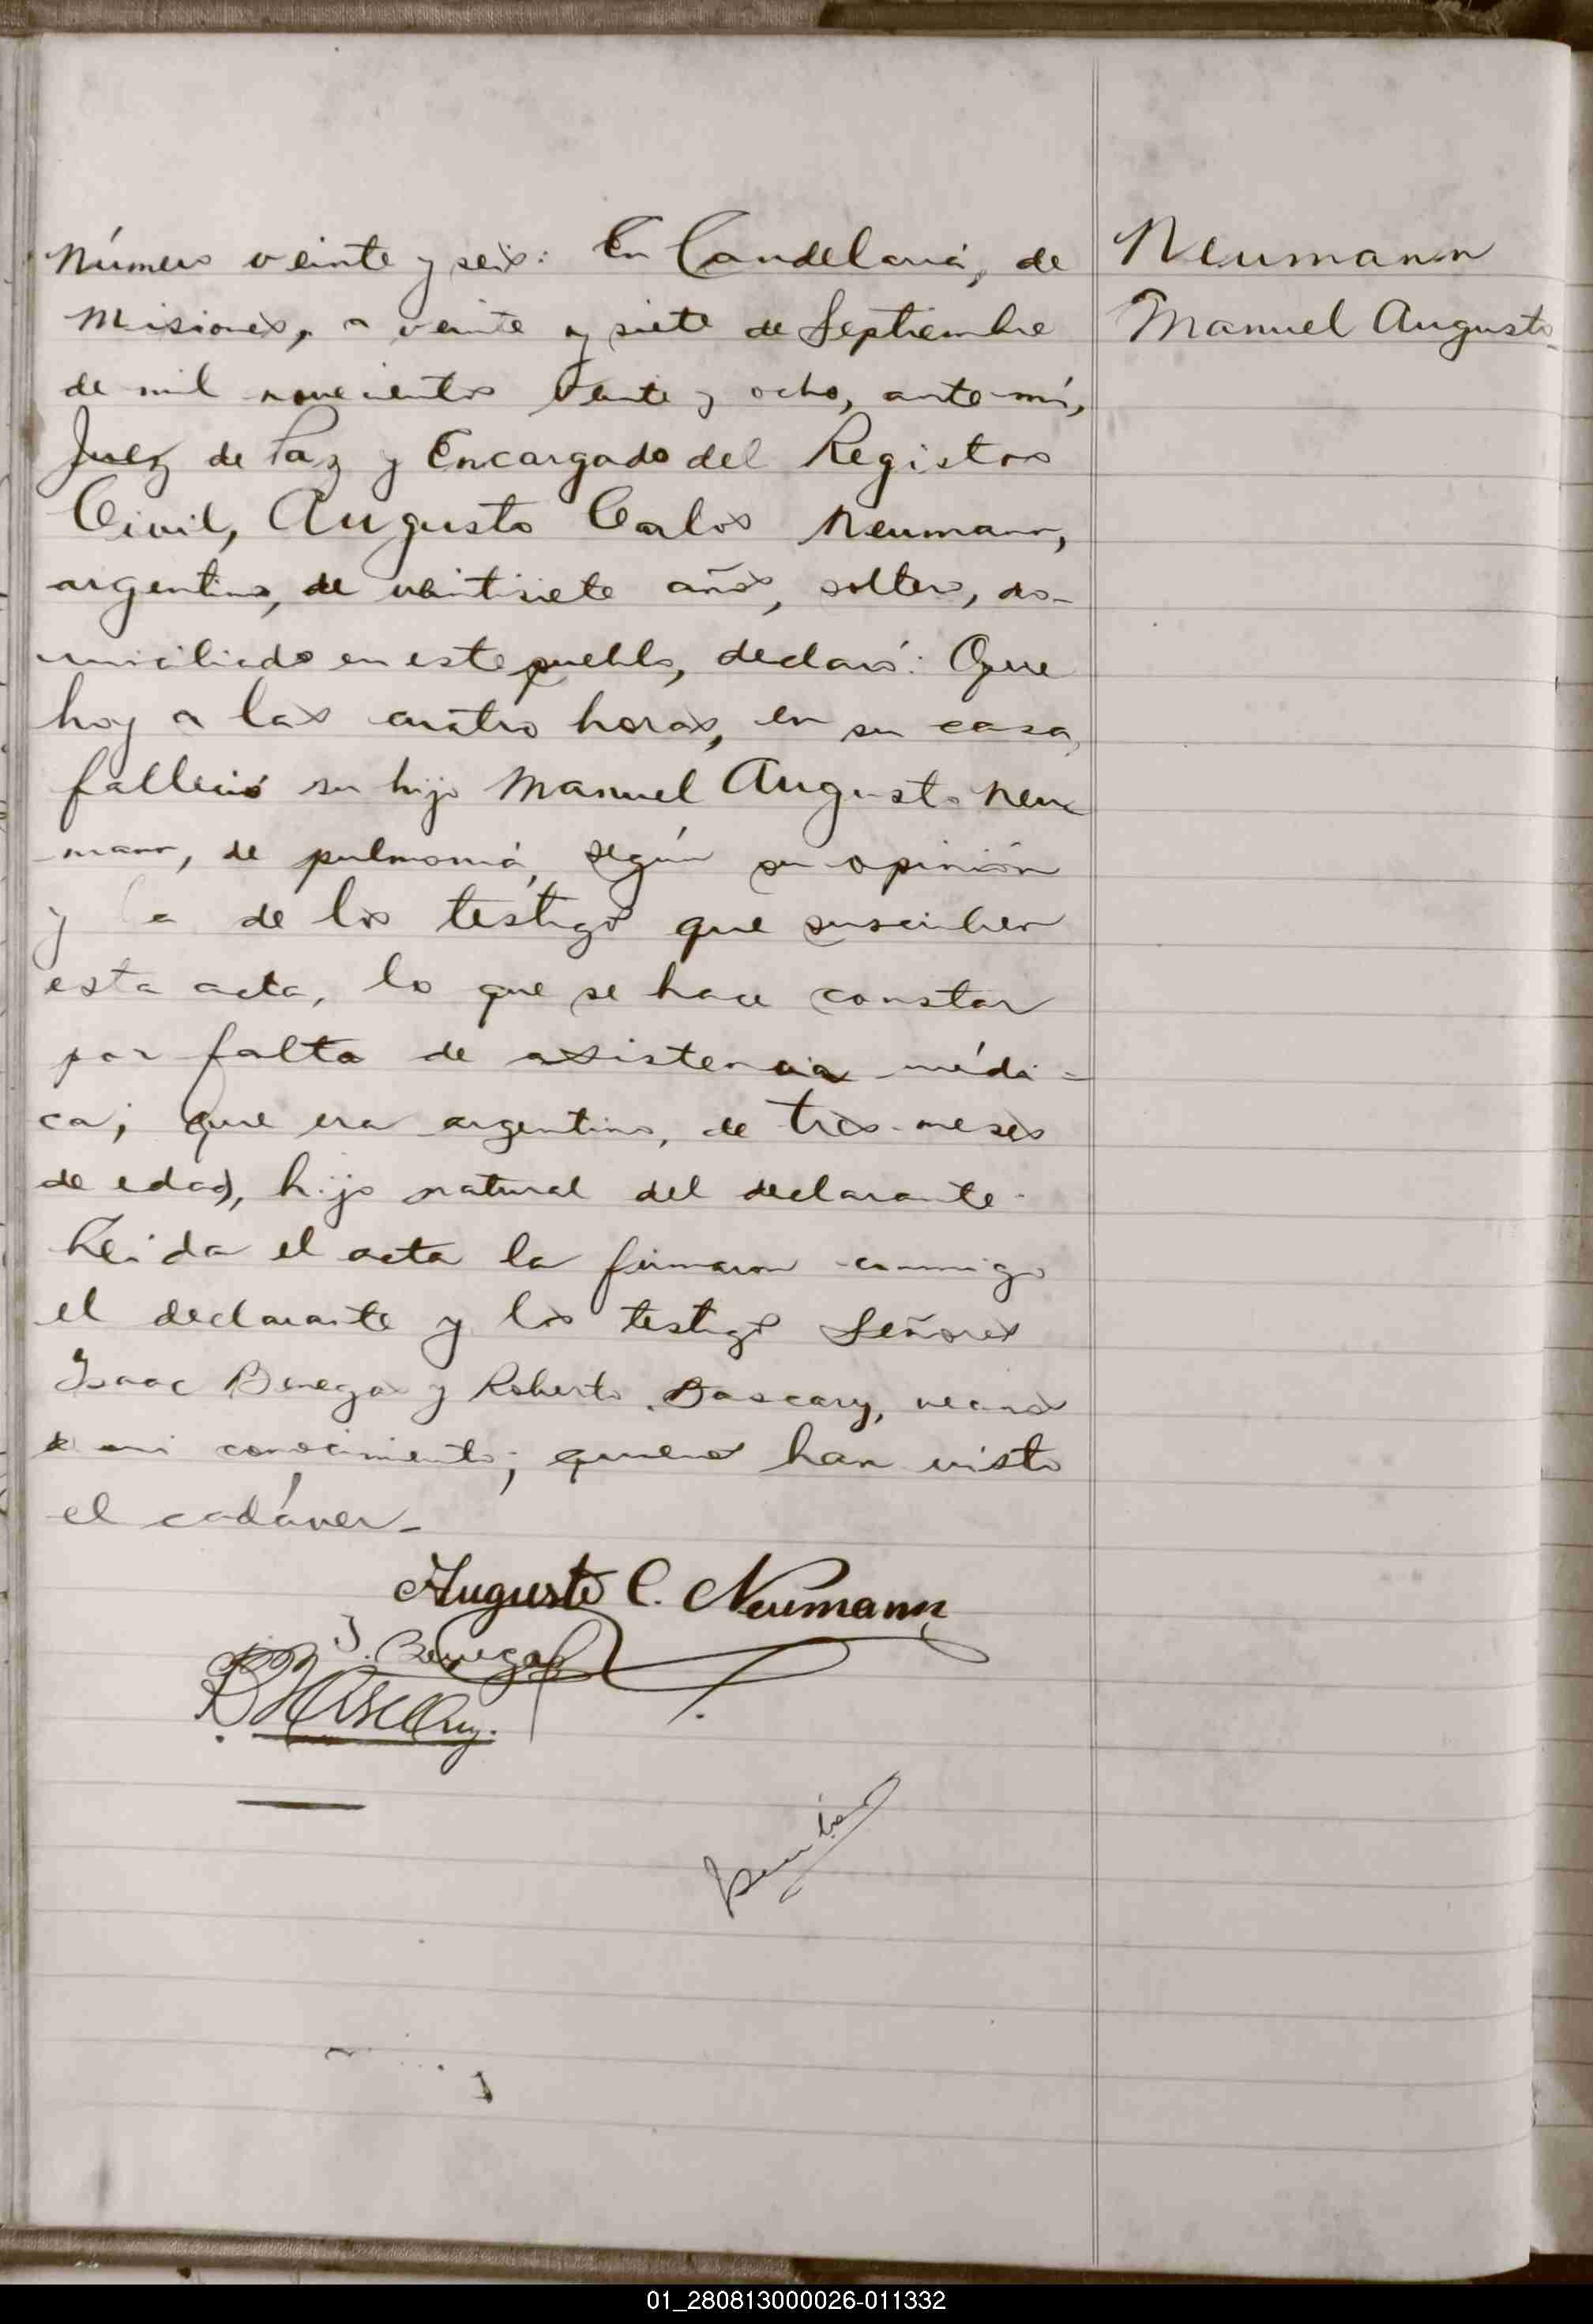 Número veinte y seis: En Candelaria, de
Misiones, a veinte y siete de Septiembre
de mil novecientos veinte y ocho, ante mí,
Juez de Paz y Encargado del Registro
Civil, Augusto Carlos Neumann,
argentino, de veintisiete años, soltero, do-
miciliado en este pueblo, declaró: Que
hoy a las cuatro horas, en su casa,
falleció su hijo Manuel Augusto Neu
-mann, de pulmonía, según su opinión
y la de los testigos que suscriben
esta acta, lo que se hace constar
por falta de asistencia médi=
ca; que era argentino, de tres meses
de edad, hijo natural del declarante.
Leida el acta la firmaron conmigo
el declarante y los testigos Señores
Isaac Benegas y Roberto Bascary, vecinos
de mi conocimiento; quienes han visto
el cadáver-
Augusto C. Neumann
I. Benegas
R Bascary.
Neumann
Manuel Augusto-
01_280813000026-011332